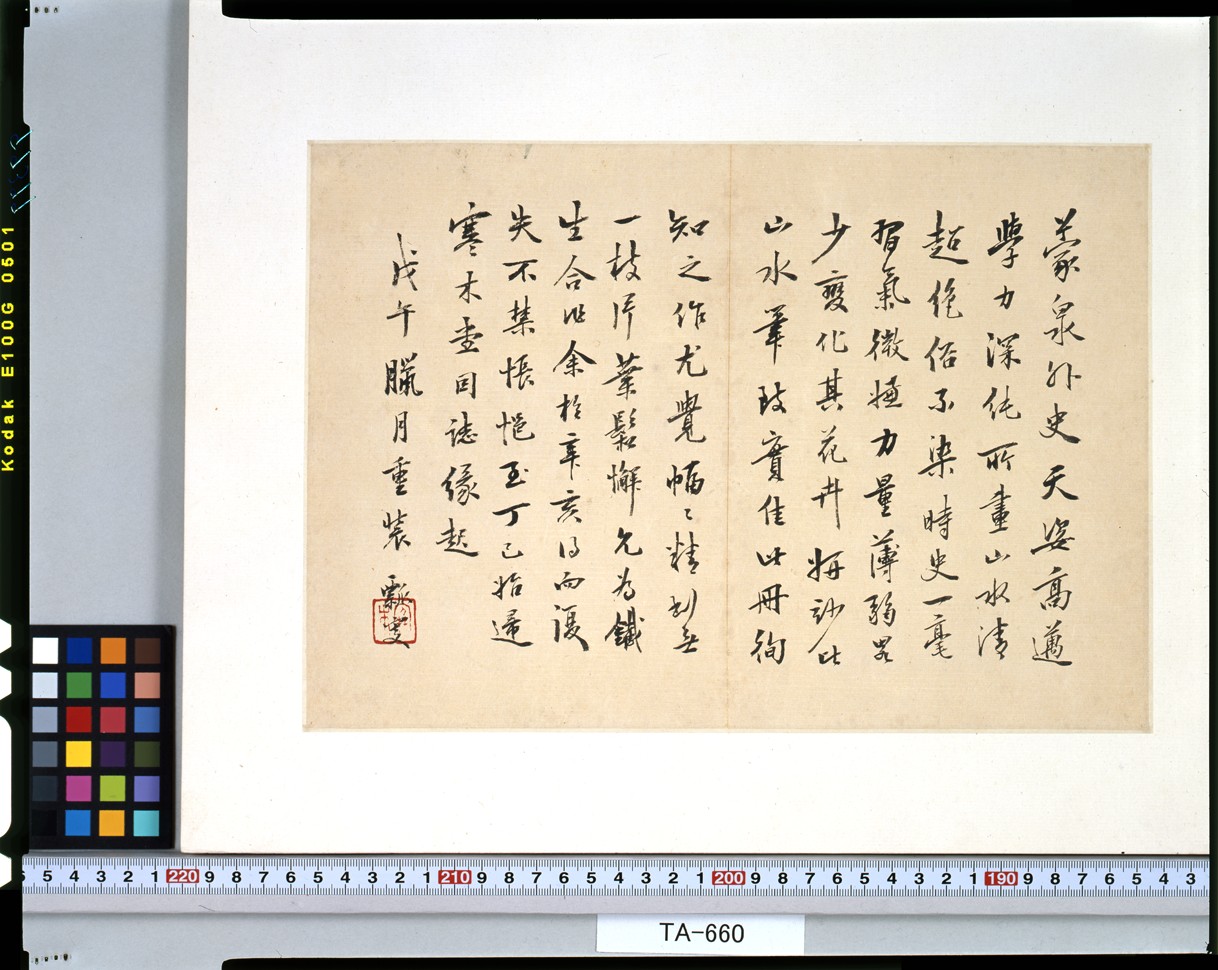 蒙泉外史天姿高邁
學力深純所畫山水清
超絕俗不染時史一毫
習氣微嫌力量薄弱畧
少變化其花卉妍妙比
山水筆致實佳此冊徇
知之作尤覺幅〻精到無
一枝片葉鬆懈允為鐵
生合作余於辛亥得而復
失不禁悵悒至丁巳始歸
寒木堂因誌緣起
戊午臘月重裝 瓢叟
Kodak E100G 0501
6 5 4 3 2 1 220 9 8 7 6 5 4 3 2 1 210 9 8 7 6 5 4 3 2 1 200 9 8 7 6 5 4 3 2 1 190 9 8 7 6 5 4 3
TA-660